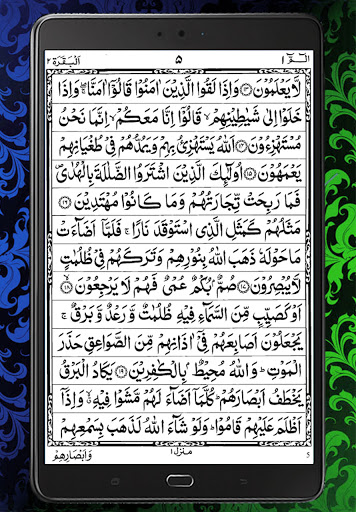 البقرة ٢
٥
الٓمّٓ ١
لَّا يَعْلَمُوْنَ ﴿۱۳﴾ وَاِذَا لَقُوا الَّذِيْنَ اٰمَنُوْا قَالُوْٓا اٰمَنَّا ۖۚ وَاِذَا
خَلَوْا اِلٰى شَيٰطِيْنِهِمْ ۙ قَالُوْٓا اِنَّا مَعَكُمْ ۙ اِنَّمَا نَحْنُ
مُسْتَهْزِءُوْنَ ﴿۱۴﴾ اَللّٰهُ يَسْتَهْزِئُ بِهِمْ وَيَمُدُّهُمْ فِيْ طُغْيَانِهِمْ
يَعْمَهُوْنَ ﴿۱۵﴾ اُولٰٓئِكَ الَّذِيْنَ اشْتَرَوُا الضَّلٰلَةَ بِالْهُدٰى ۪
فَمَا رَبِحَتْ تِّجَارَتُهُمْ وَمَا كَانُوْا مُهْتَدِيْنَ ﴿۱۶﴾
مَثَلُهُمْ كَمَثَلِ الَّذِي اسْتَوْقَدَ نَارًا ۚ فَلَمَّآ اَضَآءَتْ
مَا حَوْلَهٗ ذَهَبَ اللّٰهُ بِنُوْرِهِمْ وَتَرَكَهُمْ فِيْ ظُلُمٰتٍ
لَّا يُبْصِرُوْنَ ﴿۱۷﴾ صُمٌّۢ بُكْمٌ عُمْيٌ فَهُمْ لَا يَرْجِعُوْنَ ﴿۱۸﴾
اَوْ كَصَيِّبٍ مِّنَ السَّمَآءِ فِيْهِ ظُلُمٰتٌ وَّرَعْدٌ وَّبَرْقٌ ۚ
يَجْعَلُوْنَ اَصَابِعَهُمْ فِيْٓ اٰذَانِهِمْ مِّنَ الصَّوَاعِقِ حَذَرَ
الْمَوْتِ ؕ وَاللّٰهُ مُحِيْطٌۢ بِالْكٰفِرِيْنَ ﴿۱۹﴾ يَكَادُ الْبَرْقُ
يَخْطَفُ اَبْصَارَهُمْ ؕ كُلَّمَآ اَضَآءَ لَهُمْ مَّشَوْا فِيْهِ ۙ وَاِذَآ
اَظْلَمَ عَلَيْهِمْ قَامُوْا ؕ وَلَوْ شَآءَ اللّٰهُ لَذَهَبَ بِسَمْعِهِمْ
وَاَبْصَارِهِمْ
منزل ۱
5